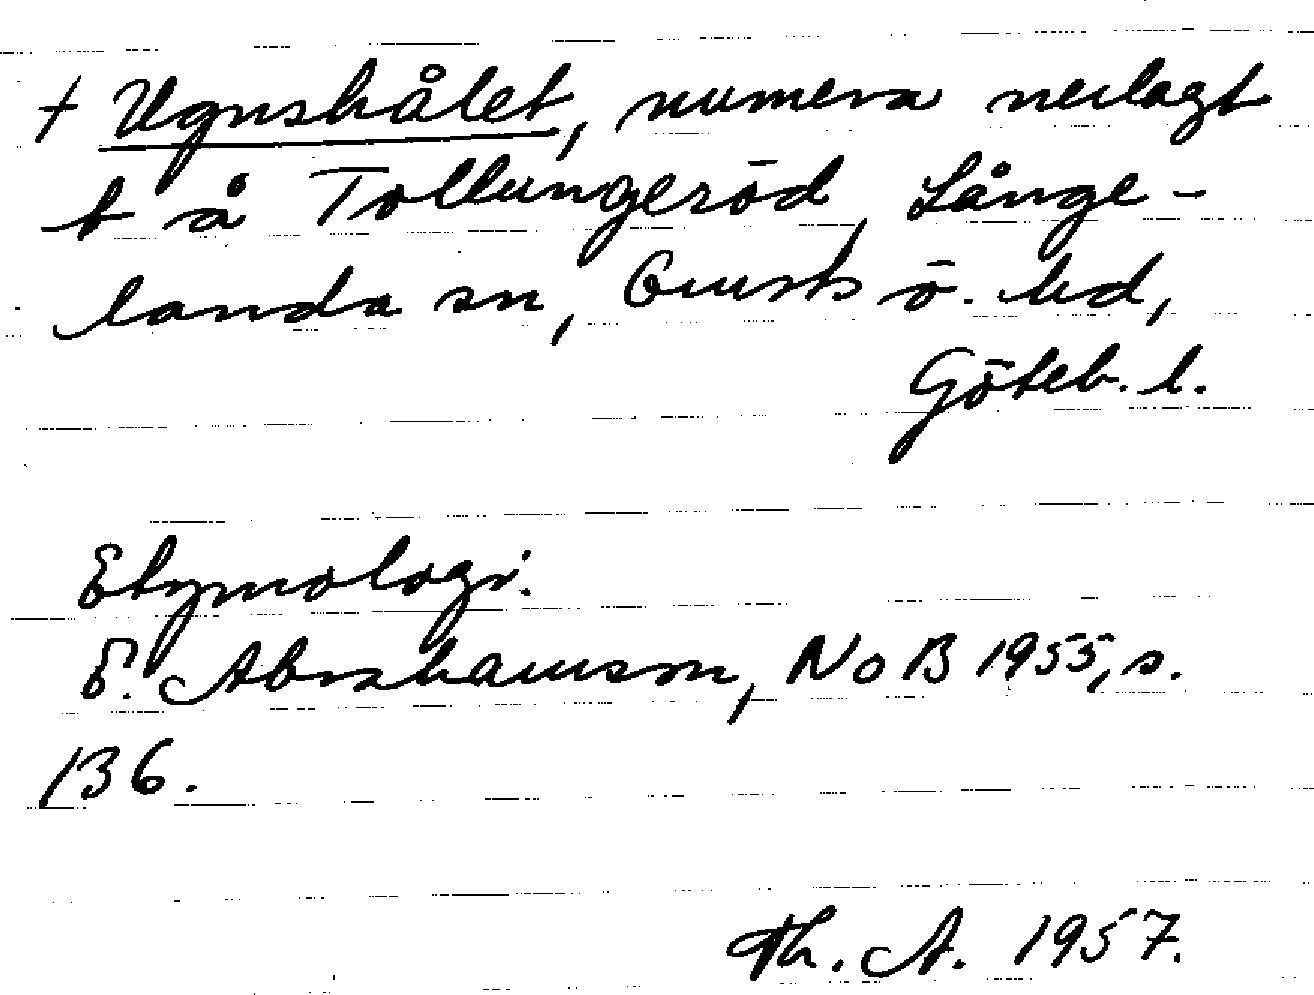 + Ugnshålet, numera nerlagt
t å Tollungeröd, Långe-
landa sn, Orusts ö. hd,
Göteb. l.
Etymologi.
E. Abrahamson, NoB 1955, s.
136.
Th. A. 1957.